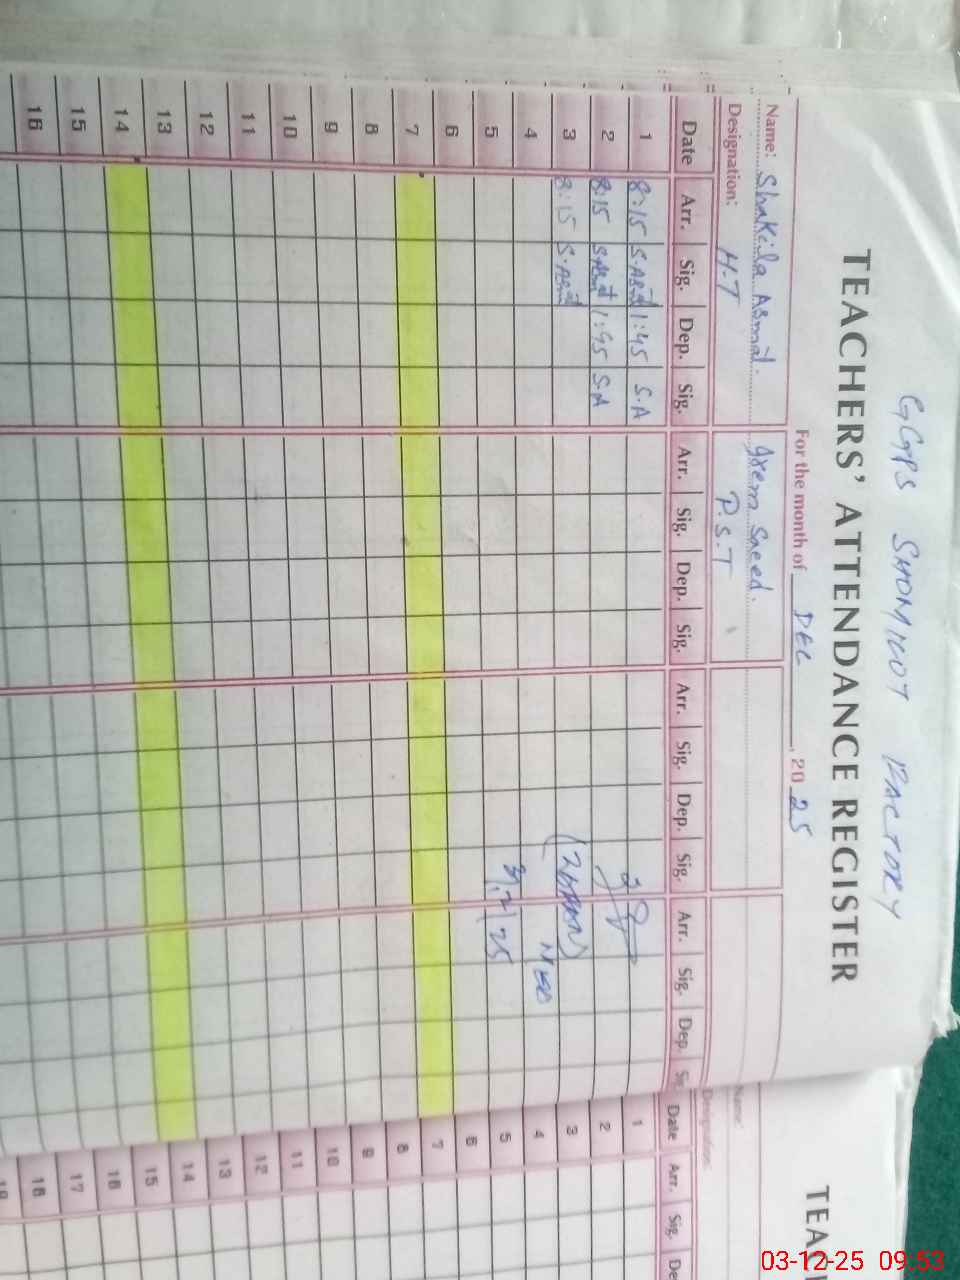 GGPS SHOMILOT FACTORY
TEACHERS' ATTENDANCE REGISTER
For the month of DEC, 2025
Name: Shakila Asmat. Irem Saeed.
Designation: H.T P.S.T
Date Arr. Sig. Dep. Sig. Arr. Sig. Dep. Sig. Arr. Sig. Dep. Sig. Arr. Sig. Dep.
1 8:15 S.Asmat 1:45 S.A
2 8:15 S.Asmat 1:45 S.A
3 8:15 S.Asmat
4
5
6
7
8
9
10
11
12
13
14
15
16
TEAC
Name:
Designation:
Date Arr. Sig.
1
2
3
4
5
6
7
8
9
10
11
12
13
14
15
16
17
18
03-12-25 09:53